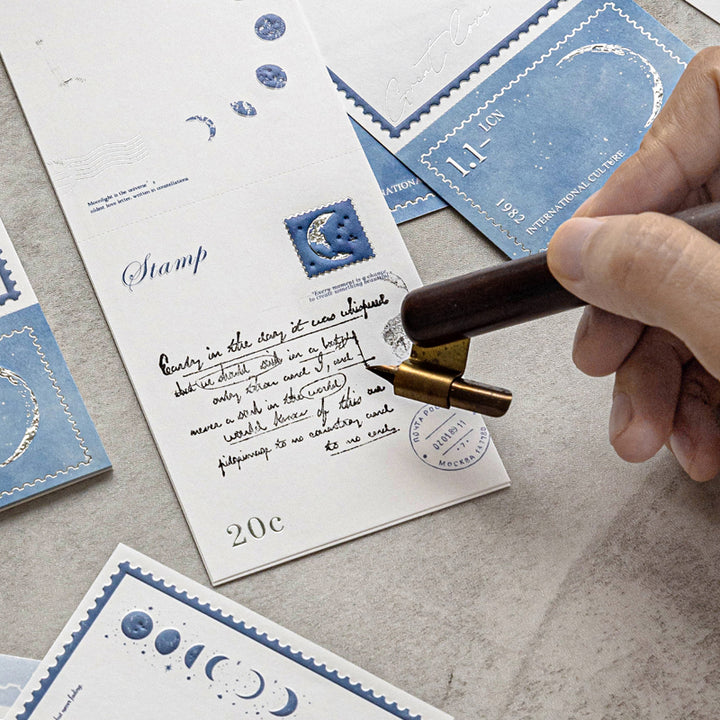 Moonlight is the universe's
oldest love letter, written in constellations
Stamp
"Every moment is a chance
to create something beautiful."
Early in the day it was whispered
that we should sail in a boat,
only thou and I, and
never a soul in the world
would know of this our
pilgrimage to no country and
to no end.
20c
ПОЧТА РОС
02.01.89 11
- 7 -
МОСКВА 147780
1.1- LCN
1982
INTERNATIONAL CULTURE
NATIONAL